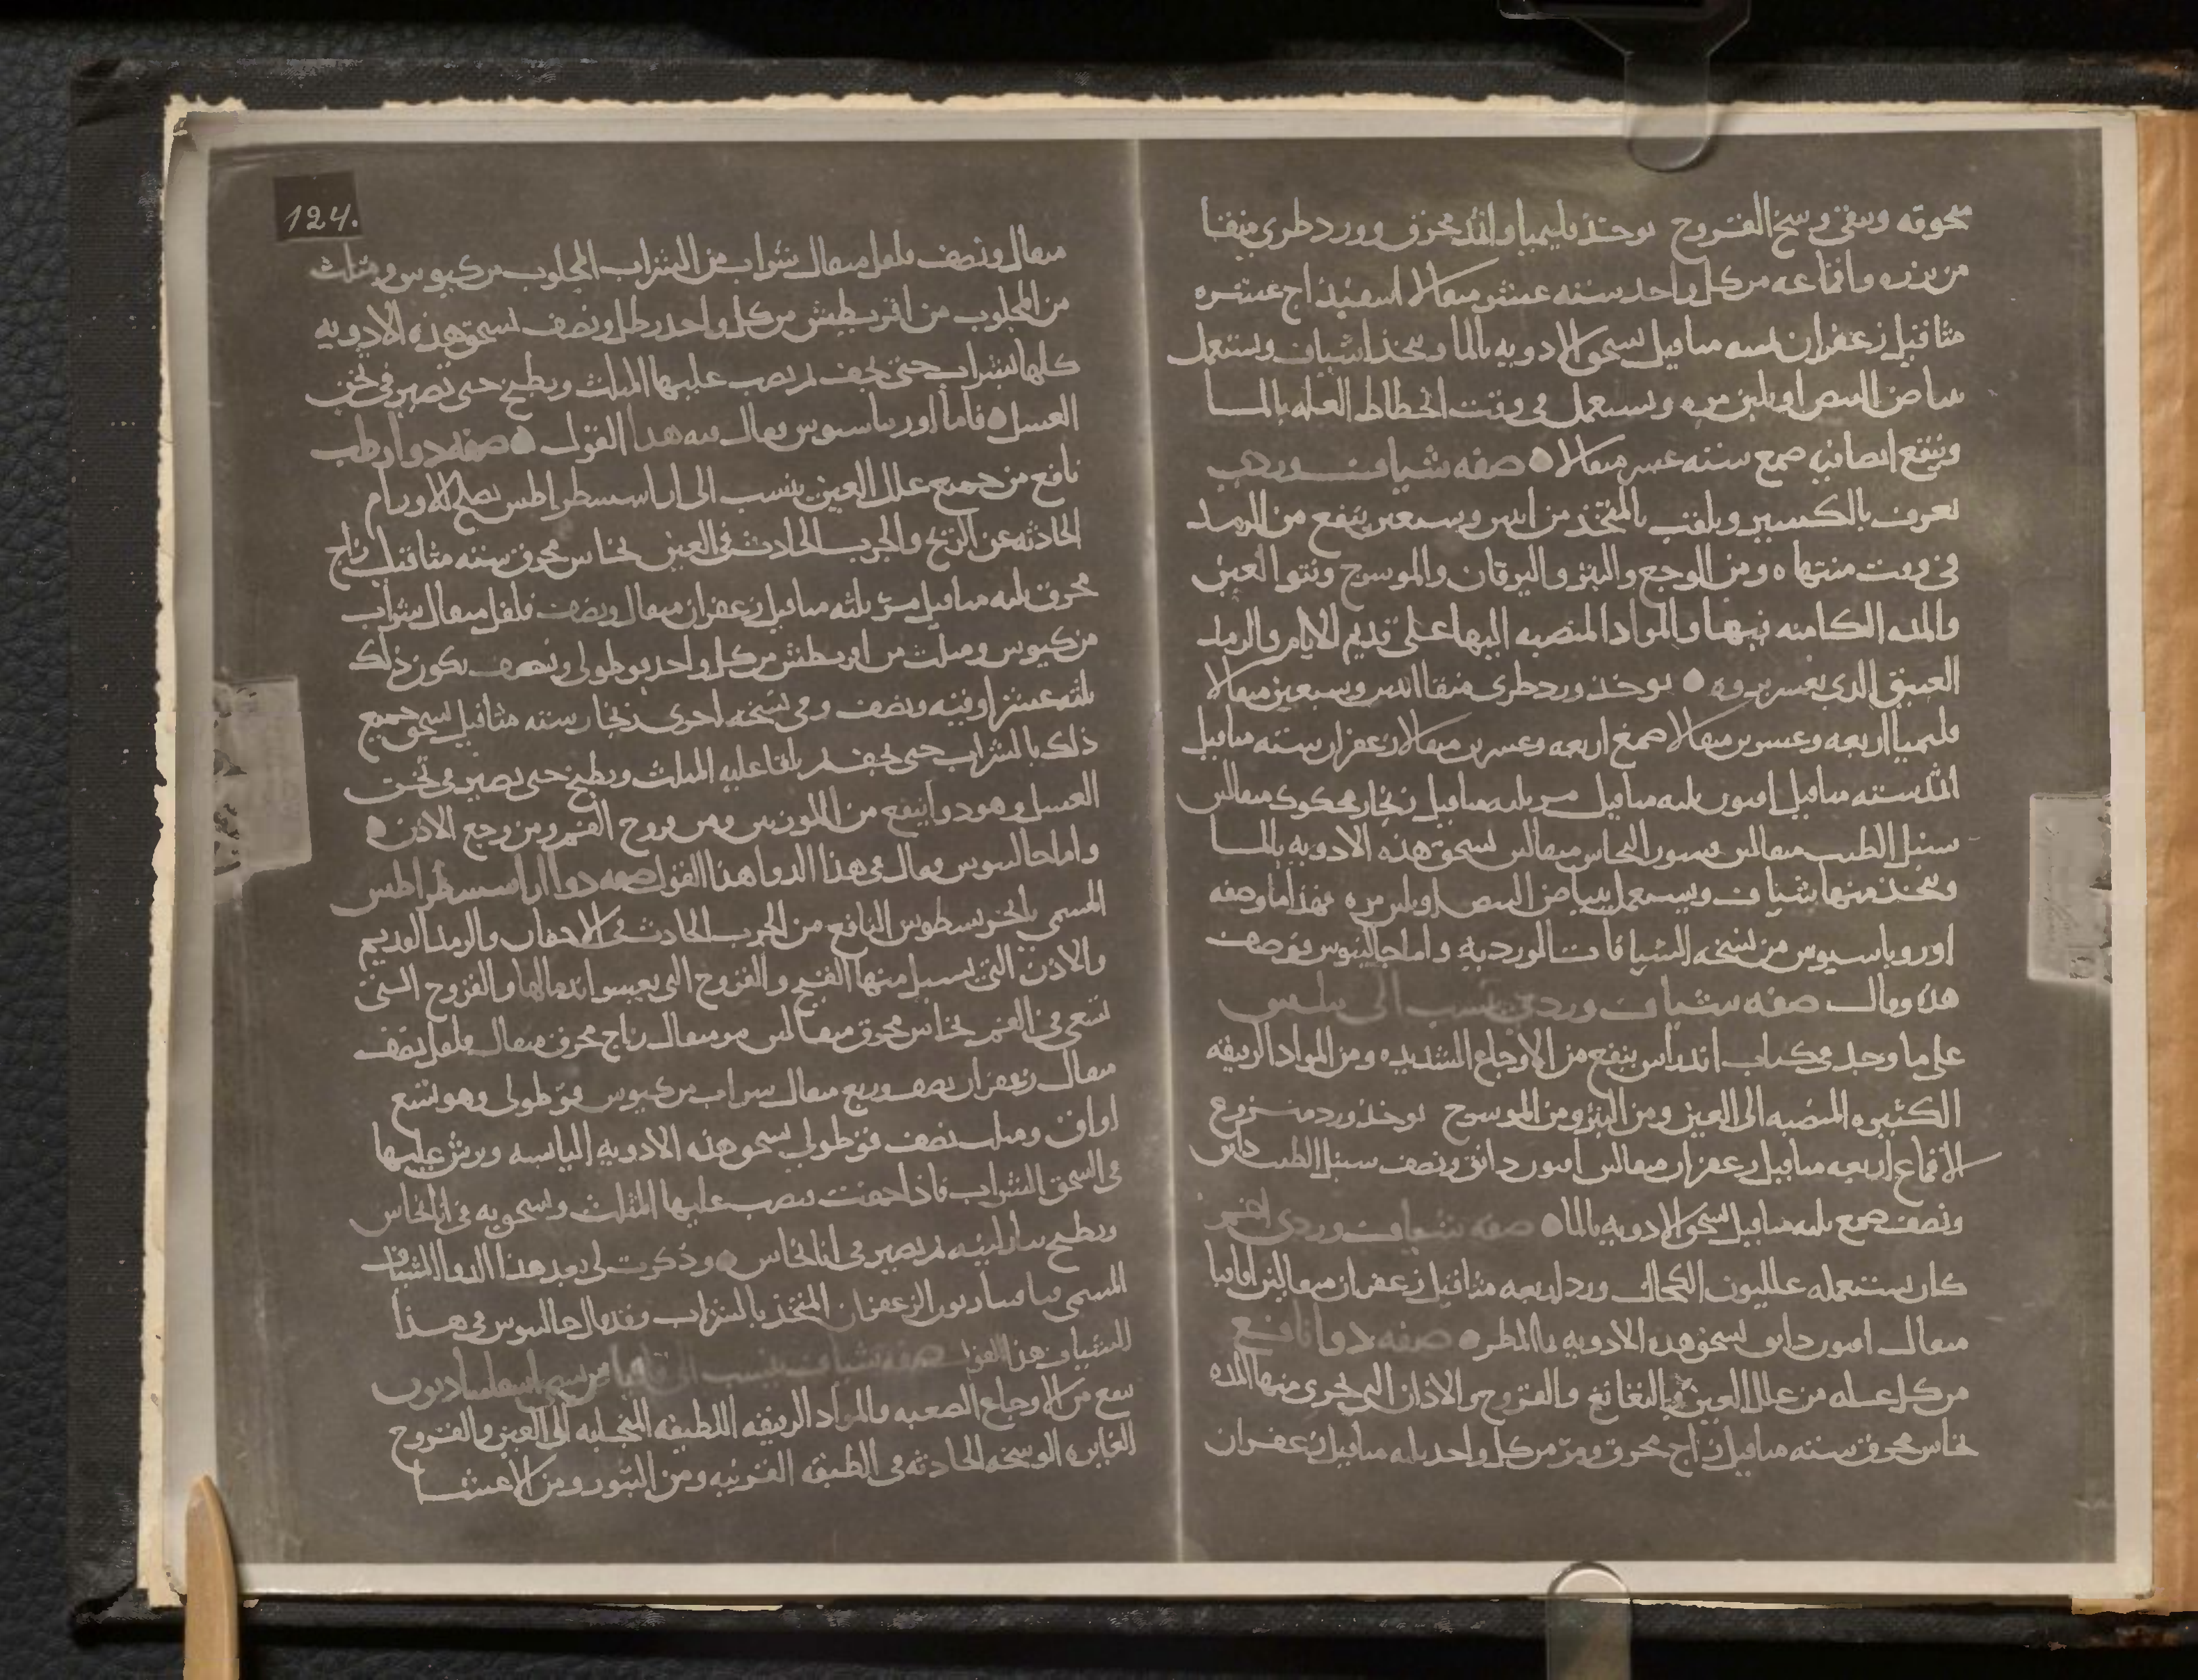 محوقه وينقى وسخ القروح يوخذ قليميا واثمد محرق وورد طرى منقا
من بزره واقماعه من كل واحد سته عشر مثقالا اسفيذاج عشره
مثاقيل زعفران خمسه مثاقيل تسحق الادويه بالما ويتخذ اشياف ويستعمل
ببياض البيض او بلبن مره ويستعمل فى وقت انحطاط العله بالما
وينقع ايضا فيه صمغ سته عشر مثقالا صفه شياف وردى
يعرف بالكبير ويلقب بالمتخذ من اثنين وسبعين ينفع من الرمد
فى وقت منتهاه ومن الوجع والبثر واليرقان والموسرج ونتوا العين
والمده الكامنه فيها والمواد المنصبه اليها على قديم الايام والرمد
العتيق الذى يعسر بروه يوخذ ورد طرى منقا اثنين وسبعين مثقالا
قليميا اربعه وعشرين مثقالا صمغ اربعه وعشرين مثقالا زعفران سته مثاقيل
اثمد سته مثاقيل افيون ثلثه مثاقيل مر ثلثه مثاقيل زنجار محكوك مثقالين
سنبل الطيب مثقالين قشور النحاس مثقالين تسحق هذه الادويه بالما
ويتخذ منها شياف ويستعمل ببياض البيض او بلبن مره فهذا ما وصفه
اوروباسيوس من نسخه الشيافات الورديه واما جالينوس فوصف
هذه وقال صفه شياف وردى ينسب الى
على ما وجد فى كتاب اندراس ينفع من الاوجاع الشديده ومن المواد الرقيقه
الكثيره المنصبه الى العين ومن البثر ومن الموسرج يوخذ ورد منزوع
الاقماع اربعه مثاقيل زعفران مثقالين افيون دانق ونصف سنبل الطيب دانق
ونصف صمغ ثلثه مثاقيل تسحق الادويه بالما صفه شياف وردى اخر
كان يستعمله الكحال ورد اربعه مثاقيل زعفران مثقالين اقاقيا
مثقال افيون دانق تسحق هذه الادويه بما المطر صفه دوا نافع
من كل عله من علل العين والنغانغ والقروح والاذان التى تجرى منها المده
نحاس محرق سته مثاقيل زاج محرق ومر من كل واحد ثلثه مثاقيل زعفران
124.
مثقال ونصف فلفل مثقال شراب من الشراب المجلوب من كيوس ومثلث
من المجلوب من اقريطش من كل واحد رطل ونصف تسحق هذه الادويه
كلها بشراب حتى تجف ثم يصب عليها المثلث ويطبخ حتى تصير فى ثخن
العسل فاما اوريباسيوس فقال فيه هذا القول صفه دوا رطب
نافع من جميع علل العين ينسب الى اراسسطراطس يصلح للاورام
الحادثه عن الريح والجرب الحادث فى العين نحاس محرق سته مثاقيل زاج
محرق ثلثه مثاقيل مر ثلثه مثاقيل زعفران مثقال ونصف فلفل مثقال شراب
من كيوس ومثلث من اقريطش من كل واحد قوطولى ونصف يكون ذلك
ثلثه عشر اوقيه ونصف وفى نسخه اخرى زنجار سته مثاقيل تسحق جميع
ذلك بالشراب حتى تجف ثم يلقا عليه المثلث ويطبخ حتى يصير فى ثخن
العسل وهو دوا ينفع من اللوزتين ومن قروح الفم ومن وجع الاذن
واما جالينوس فقال فى هذا الدوا هذا القول صفه دوا اراسسطراطس
المسمى النافع من الجرب الحادث فى الاجفان والرمد القديم
والاذن التى يسيل منها القيح والقروح التى يعسر اندمالها والقروح التى
تسعى فى الفم نحاس محرق مثقالين مر مثقال زاج محرق مثقال فلفل نصف
مثقال زعفران نصف وربع مثقال شراب من كيوس قوطولى وهو تسع
اواق ومثلث نصف قوطولى تسحق هذه الادويه اليابسه ويرش عليها
فى السحق الشراب فاذا جفت يصب عليها المثلث وتسحق به فى انا نحاس
ويطبخ بنار لينه ثم يصير فى انا نحاس وذكرت لى بعد هذا الدوا الشياف
المسمى الزعفران المتخذ بالشراب وقد قال جالينوس فى هذا
الشياف هذا القول صفه شياف ينسب الى
ينفع من الاوجاع الصعبه والمواد الرقيقه اللطيفه المتجلبه الى العين والقروح
الغايره الوسخه الحادثه فى الطبقه القرنيه ومن البثور ومن الاعشا